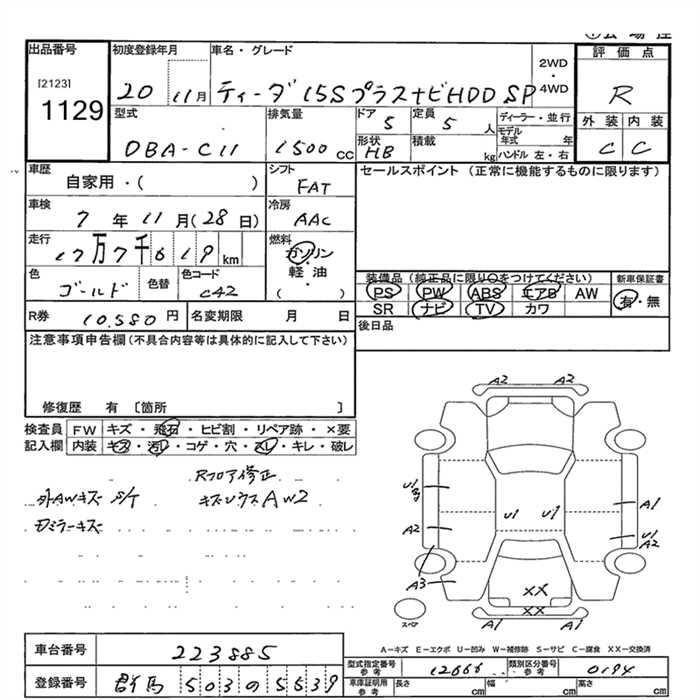 出品番号
[2123]
1129
初度登録年月
20 11月
車名・グレード
ティーダ 15SプラスナビHDD SP
2WD
・
4WD
評価点
R
外装 内装
C C
型式
DBA-C11
排気量
1500cc
ドア
5
定員
5人
形状
HB
積載
kg
ディーラー・並行
モデル年式 年
ハンドル 左・右
車歴
自家用・( )
シフト
FAT
セールスポイント (正常に機能するものに限ります)
車検
7年11月(28日)
冷房
AAC
走行
17万7千619km
燃料
ガソリン
・
軽油
・
( )
色
ゴールド
色替
色コード
C42
装備品 (純正品に限り○をつけてください)
PS PW ABS エアB AW
SR ナビ TV カワ
新車保証書
有・無
R券 10,580円
名変期限 月 日
後日品
注意事項申告欄(不具合内容等は具体的に記入して下さい)
修復歴 有 〔箇所 〕
検査員
記入欄
FW キズ・飛石・ヒビ割・リペア跡・×要
内装 キズ・汚レ・コゲ・穴・スレ・キレ・破レ
Rフロア修正
外AWキズ S/T
キズソウスAW2
Dミラーキズ
A2 A2
U1
A2
A3
U1 U1
A1
U1
A2
XX
XX
A1 A1
スペア
A-キズ E-エクボ U-凹み W-補修跡 S-サビ C-腐食 XX-交換済
車台番号
223885
登録番号
群馬 503の5539
型式指定番号
参考
12666
類別区分番号
参考
0194
車庫証明用
参考
長さ cm
幅 cm
高さ cm